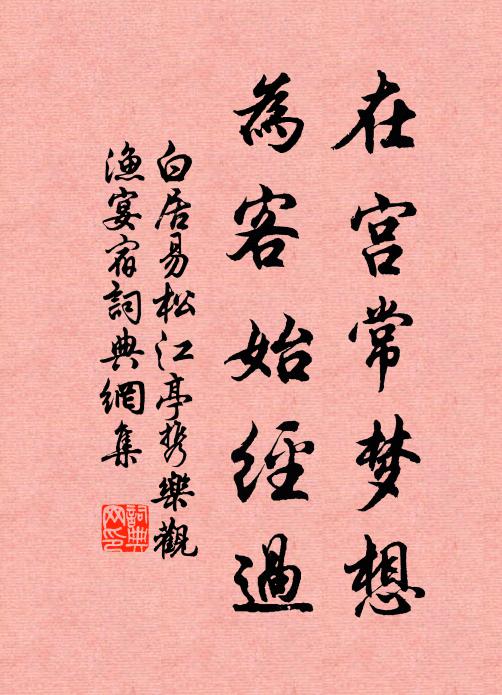 在宫常梦想
為客始經過
白居易松江亭携樂觀
漁宴宿詞典網集
詞典
网印